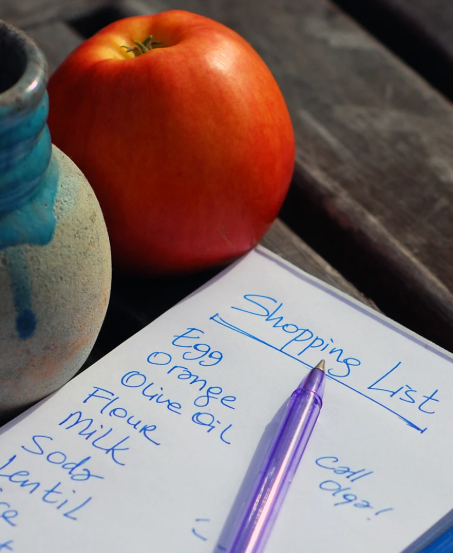 Shopping List
Egg
Orange
Olive Oil
Flour
Milk
Soda
Lentil
call
Olga!